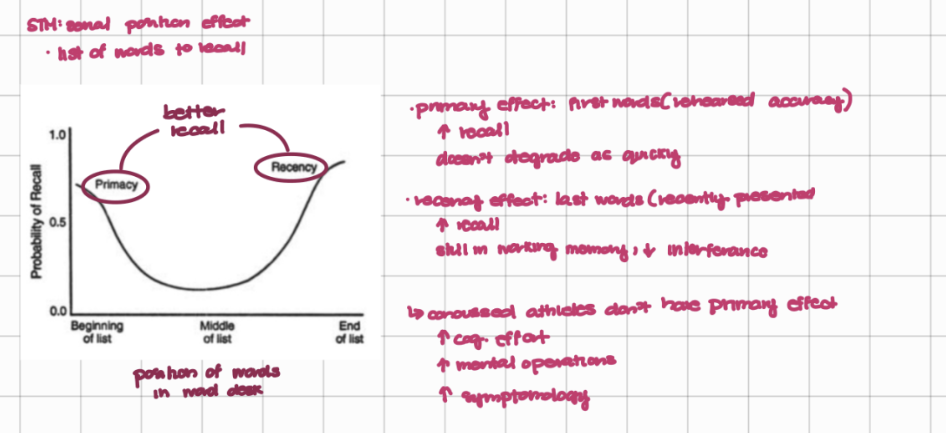 STM: serial position effect
· list of words to recall
better
recall
1.0
0.5
0.0
Probability of Recall
Primacy
Recency
Beginning
of list
Middle
of list
End
of list
position of words
in word
· primary effect: first words (rehearsed accuracy)
↑ recall
doesn't degrade as quickly
· recency effect: last words (recently presented
↑ recall
still in working memory, ↓ interferance
↳ concussed athletes don't have primary effect
↑ cog. effort
↑ mental operations
↑ symptomology